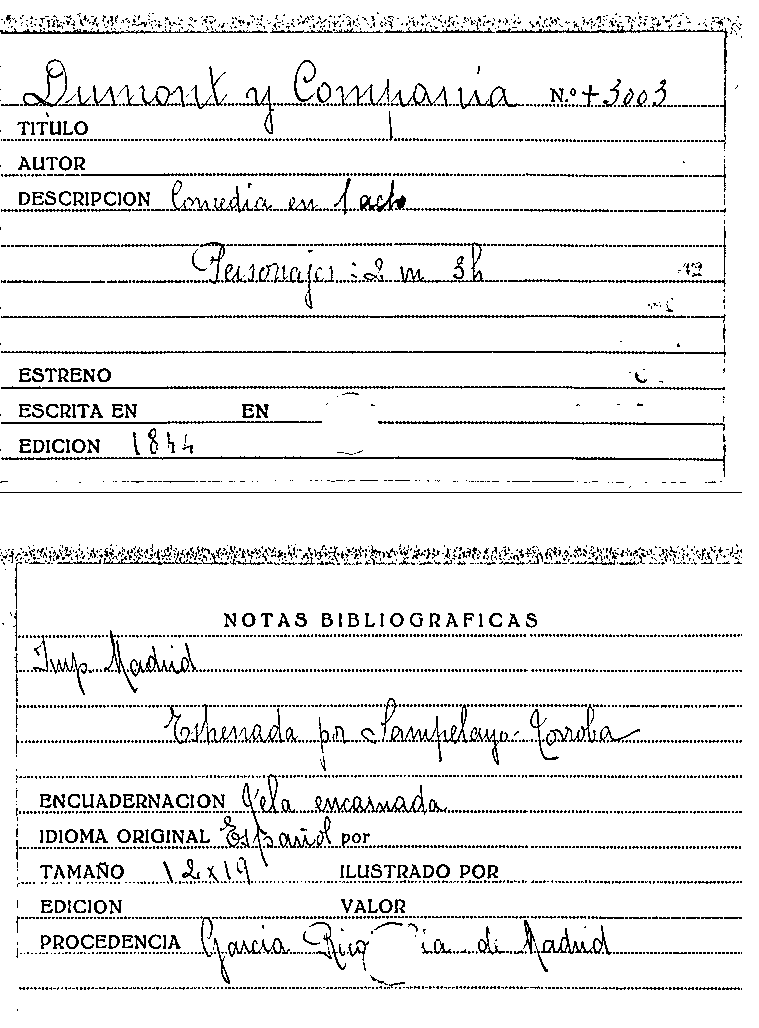 Dumont y Compañia N.º +3003
TITULO
AUTOR
DESCRIPCION Comedia en 1 acto
Personajes : 2 m 3h
ESTRENO
ESCRITA EN EN
EDICION 1844
NOTAS BIBLIOGRAFICAS
Imp. Madrid
Estrenada por Sampelayo-Torroba
ENCUADERNACION Tela encarnada
IDIOMA ORIGINAL Español por
TAMAÑO 12x19 ILUSTRADO POR
EDICION VALOR
PROCEDENCIA Garcia Rico de Madrid